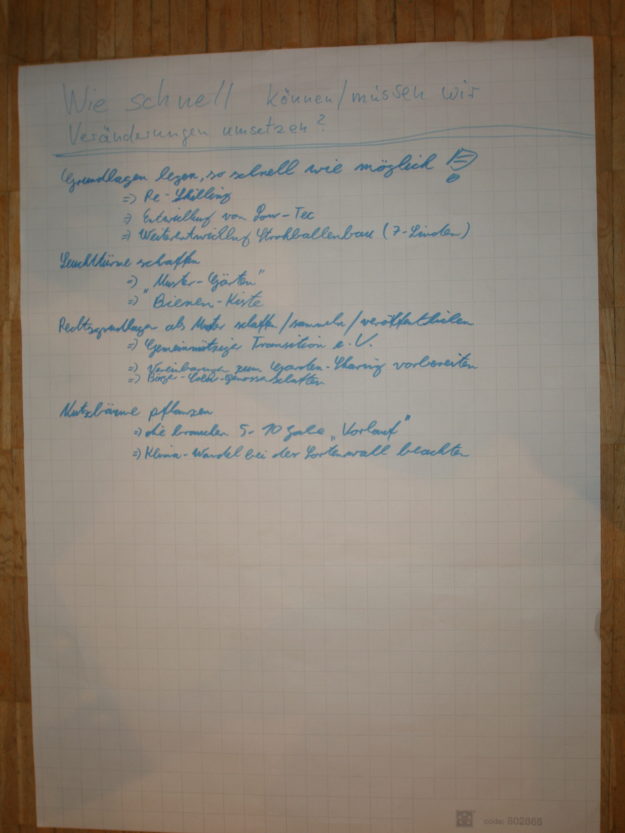 Wie schnell können/müssen wir
Veränderungen umsetzen?
Grundlagen legen, so schnell wie möglich !
=> Re-Skilling
=> Entwicklung von Low-Tec
=> Weiterentwicklung Strohballenbau (7-Linden)
Leuchttürme schaffen
=> „Muster-Gärten"
=> "Bienen-Kiste
Rechtsgrundlagen als Muster schaffen/sammeln/veröffentlichen
=> Gemeinnützige Transition e.V.
=> Vereinbarungen zum Garten-Sharing vorbereiten
=> Bürger-Solar-Genossenschaften
Nutzbäume pflanzen
=> die brauchen 5-10 Jahre „Vorlauf"
=> Klima-Wandel bei der Sortenwahl beachten
code: 802868